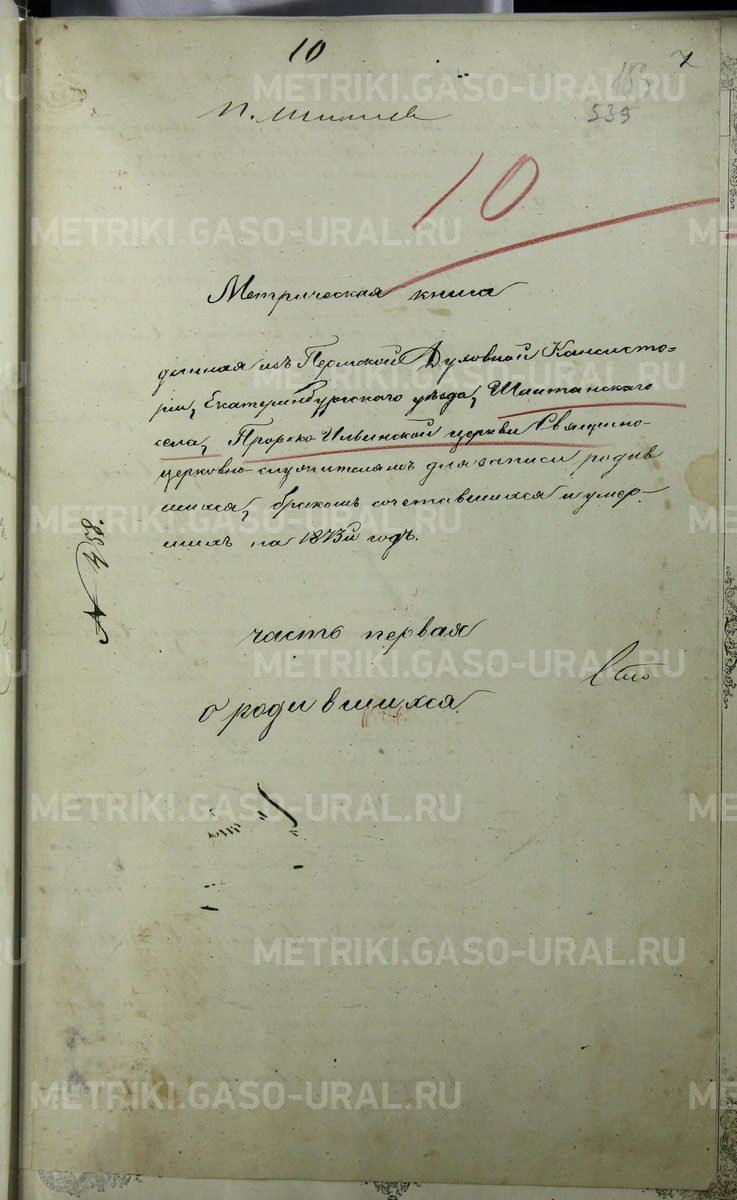 10
539
10
Метрическая книга
данная изъ Пермской Духовной Консисто-
ріи, Екатеринбургскаго уѣзда, Шайтанскаго
села, Пророко-Ильинской церкви Священно-
церковно-служителямъ для записи родив
шихся, бракомъ сочетавшихся и умер-
шихъ на 1873й годъ.
часть первая
о родившихся.
METRIKI.GASO-URAL.RU